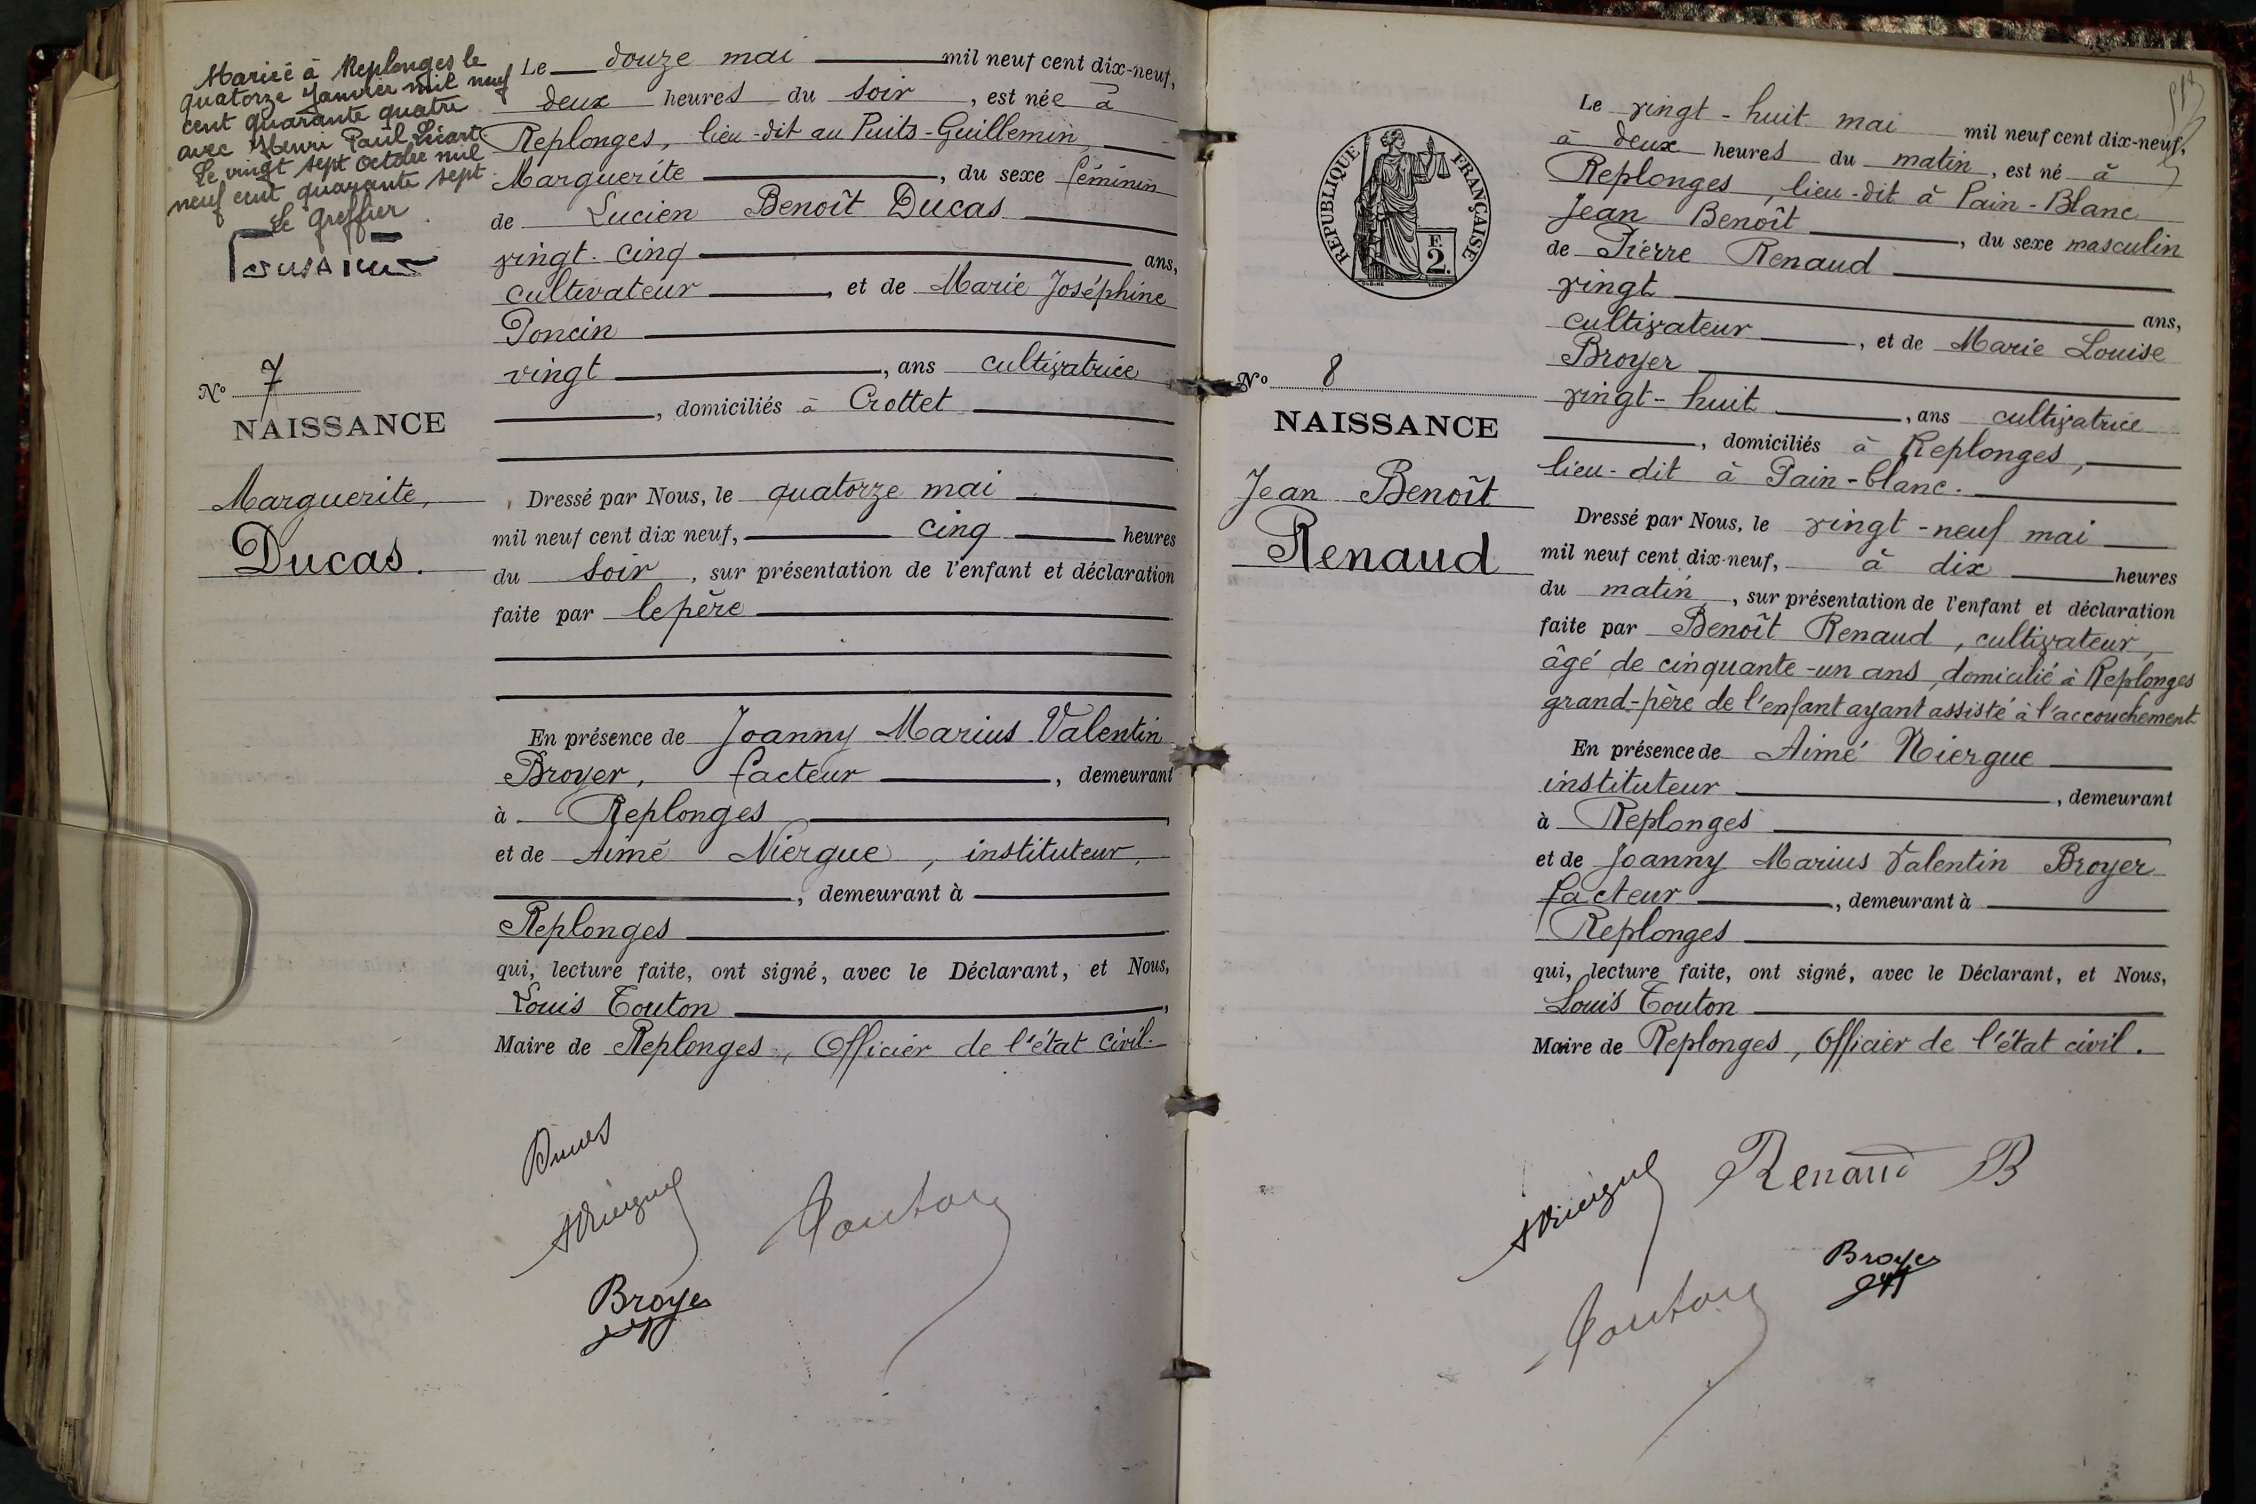 Mariée à Replonges le
quatorze Janvier mil neuf
cent quarante quatre
avec Henri Paul Ricart
Le vingt sept Octobre mil
neuf cent quarante sept
Le Greffier
N° 7
NAISSANCE
Marguerite,
Ducas.
Le douze mai mil neuf cent dix-neuf,
deux heures du soir, est née à
Replonges, lieu-dit au Puits-Guillemin,
Marguerite, du sexe féminin
de Lucien Benoît Ducas
vingt-cinq ans,
cultivateur, et de Marie Joséphine
Poncin
vingt, ans cultivatrice
, domiciliés à Crottet
Dressé par Nous, le quatorze mai
mil neuf cent dix neuf, cinq heures
du soir, sur présentation de l'enfant et déclaration
faite par le père
En présence de Joanny Marius Valentin
Broyer, facteur, demeurant
à Replonges,
et de Aimé Niergue, instituteur,
, demeurant à
Replonges
qui, lecture faite, ont signé, avec le Déclarant, et Nous,
Louis Touton,
Maire de Replonges, Officier de l'état civil.
Ducas
ANiergue
Touton
Broyer
RÉPUBLIQUE FRANÇAISE
E
2.
N° 8
NAISSANCE
Jean Benoît
Renaud
Le vingt-huit mai mil neuf cent dix-neuf,
à deux heures du matin, est né à
Replonges, lieu-dit à Pain-Blanc
Jean Benoît, du sexe masculin
de Pierre Renaud
vingt ans,
cultivateur, et de Marie Louise
Broyer
vingt-huit, ans cultivatrice
, domiciliés à Replonges,
lieu-dit à Pain-blanc.
Dressé par Nous, le vingt-neuf mai
mil neuf cent dix-neuf, à dix heures
du matin, sur présentation de l'enfant et déclaration
faite par Benoît Renaud, cultivateur,
âgé de cinquante-un ans, domicilié à Replonges
grand-père de l'enfant ayant assisté à l'accouchement
En présence de Aimé Niergue
instituteur, demeurant
à Replonges
et de Joanny Marius Valentin Broyer
facteur, demeurant à
Replonges
qui, lecture faite, ont signé, avec le Déclarant, et Nous,
Louis Touton
Maire de Replonges, Officier de l'état civil.
ANiergue
Renaud B
Broyer
Touton